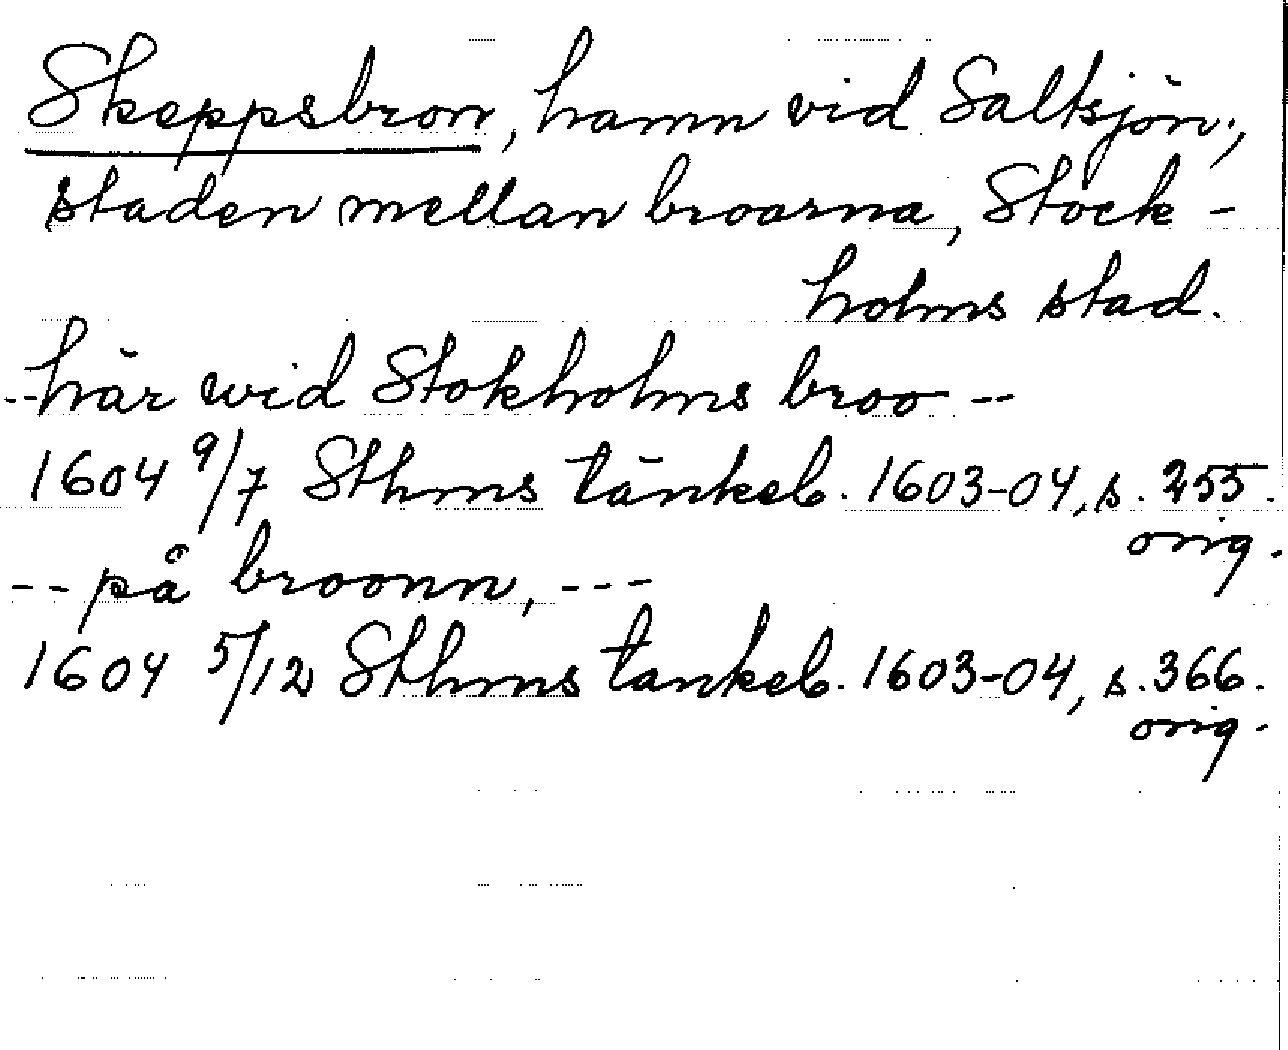 Skeppsbron, hamn vid Saltsjön;
staden mellan broarna, Stock-
holms stad.
--här wid Stokholms broo--
1604 9/7 Sthms tänkeb. 1603-04, s. 255.
orig.
-- på broonn, ---
1604 5/12 Sthms tänkeb. 1603-04, s. 366.
orig.